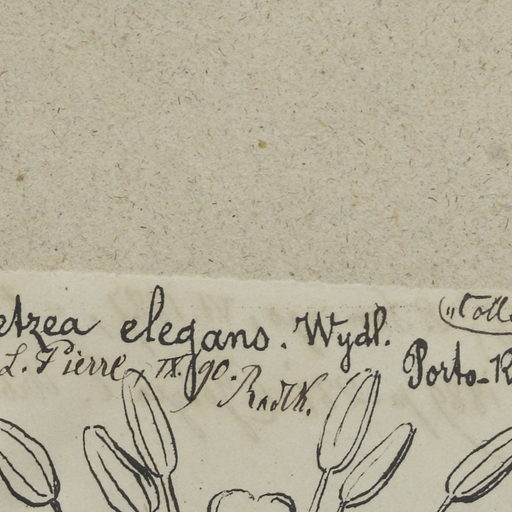 etzea elegans. Wydl. („Coll
L. Pierre IX. 90. Radlk. Porto-R